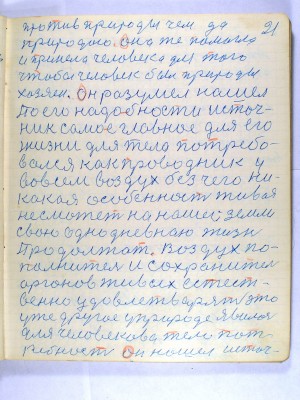 против природы чем да
21
природою. Она же помогла
и привела человека для того
чтобы человек был природы
хозяен. Он разумел нашел
по его надобности источ-
ник самое главное для его
жизни для тела потребо-
вался как проводник у
во всем воздух без чего ни-
какая особенность живая
не сможет на нашей земли
свою однодневнаю жизн
продолжат. Воздух по-
полнител и сохранител
органов живсех естест-
венно удовлетварят это
уже другое у природе явился
для человекова тела пот-
ребность Он нашел источ-